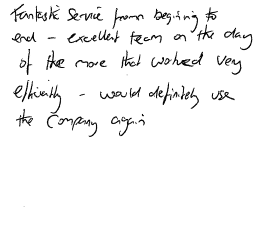 Fantastic Service from begining to
end - excellent team on the day
of the move that worked very
efficiently - would definitely use
the Company again